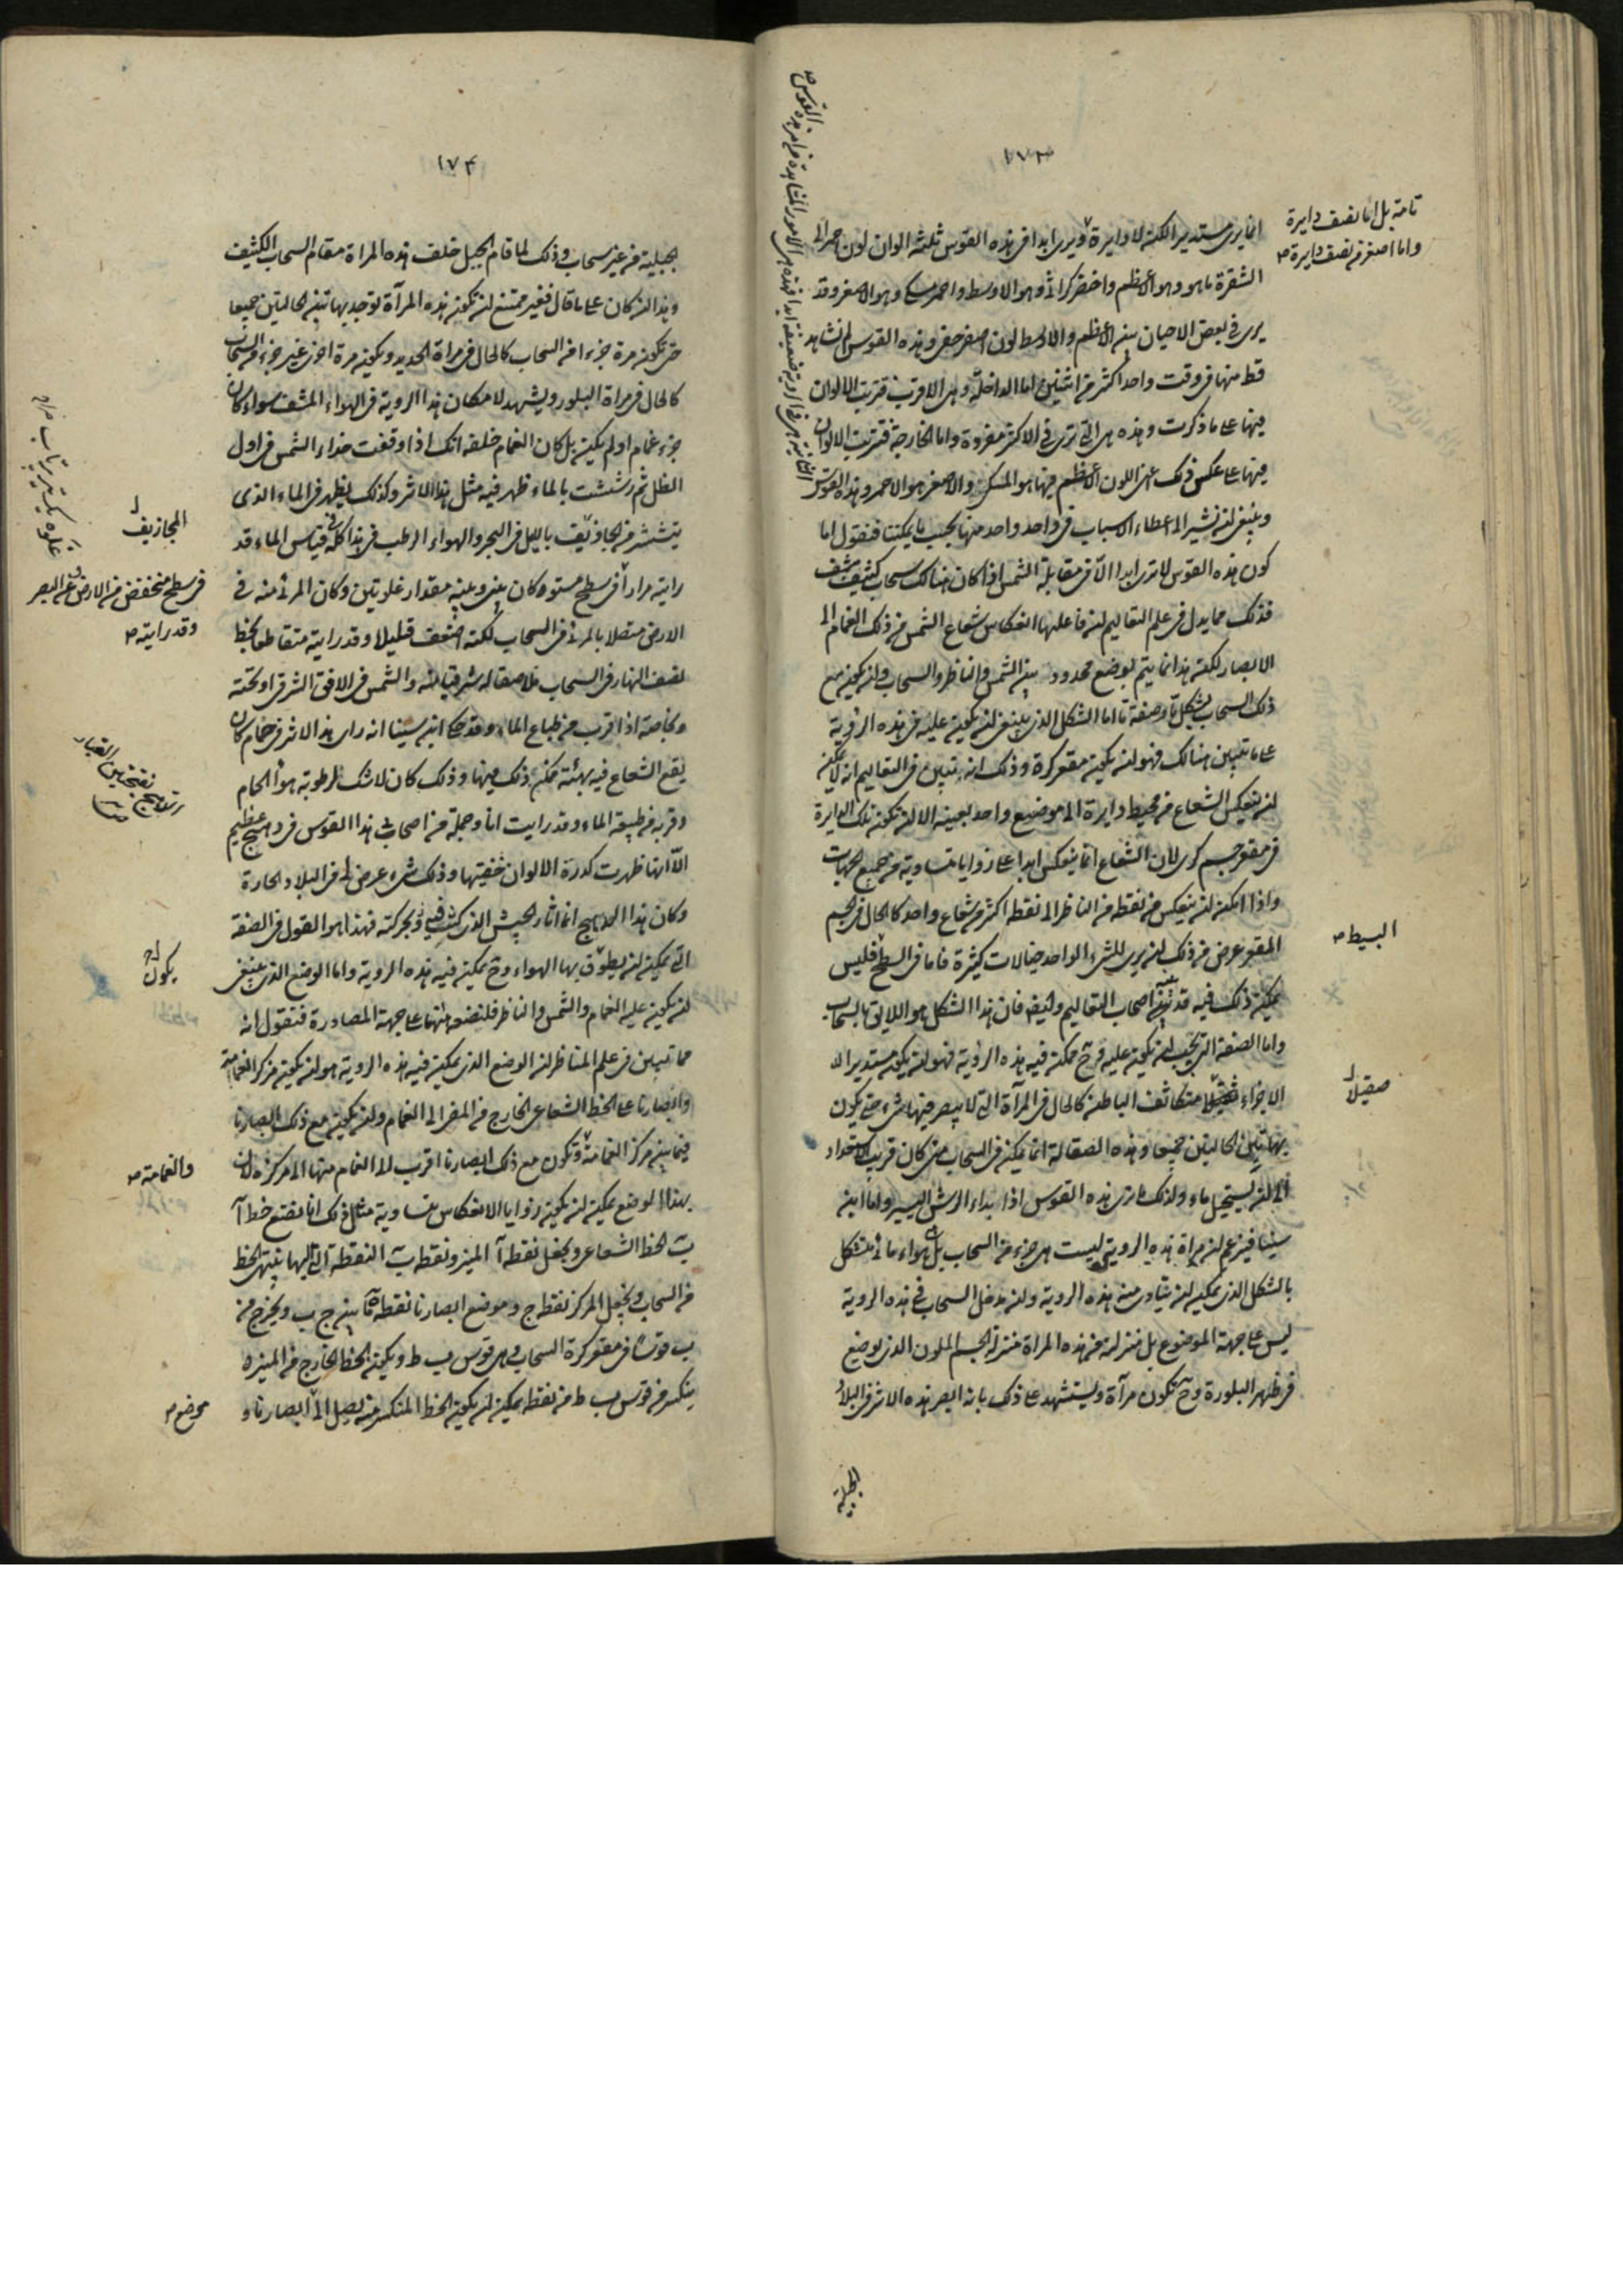 ١٧٣
تامة بل اما نصف دايرة
واما اصغر من نصف دايرة صح
انما يرى مستديرا لكنه لا دايرة ويرى ابدا فى هذه القوس ثلثة الوان لون احمر الى
الشقرة ما هو وهو الاعظم واخضر كراثى وهو الاوسط واحمر مسكى وهو الاصغر وقد
يرى فى بعض الاحيان بين الاعظم والاوسط لون اصفر وهذه القوس لم نشاهد
قط منها فى وقت واحد اكثر من اثنين اما الداخلة وهى الاقرب فترتيب الالوان
فيها على ما ذكرت وهذه هى التى ترى فى الاكثر مفردة واما الخارجة فترتيب الالوان
فيها على عكس ذلك اعنى اللون الاعظم فيها هو المسكى والاصغر هو الاحمر وهذه القوس
وينبغى ان نشير الى اعطاء الاسباب فى واحد واحد منها بحسب ما يمكننا فنقول اما
كون هذه القوس لا ترى ابدا الا فى مقابلة الشمس اذا كان هنالك سحاب كثيف مشف
فذلك مما يدل فى علم التعاليم ان فاعلها انعكاس شعاع الشمس من ذلك الغمام الى
الابصار لكن هذا انما يتم بوضع محدود بين الشمس والناظر والسحاب وان يكون مع
ذلك السحاب بشكل ما وصفة ما اما الشكل الذى ينبغى ان يكون عليه فى هذه الرؤية
على ما تبين هنالك فهو ان يكون مقعر كرة وذلك انه تبين فى التعاليم انه لا يمكن
ان ينعكس الشعاع من محيط دايرة الى موضع واحد بعينه الا ان تكون تلك الدايرة
فى مقعر جسم كرى لان الشعاع انما ينعكس ابدا على زوايا متساوية من جميع الجهات
واذا امكن ان ينعكس من نقطة من الناظر الى نقطة اكثر من شعاع واحد كالحال فى الجسم
المقعر عرض من ذلك ان يرى للشىء الواحد خيالات كثيرة فاما فى السطح فليس
البسيط صح
يمكن ذلك فيه قد بين اصحاب التعاليم وايضا فان هذا الشكل هو اللايق بالسحاب
واما الصفة التى يجب ان يكون عليه حتى يمكن فيه هذه الرؤية فهو ان يكون مستدير الـ
الاجزاء متكاثف الباطن كالحال فى المرآة التى لا يبصر فيها شىء حتى يكون
صقيلا
بهاتين الحالتين جميعا وهذه الصقالة انما يمكن فى السحاب متى كان قريب الاستعداد
الى ان يستحيل ماء ولذلك ما ترى هذه القوس اذا بداء الرش اليسير واما ابن
سينا فيزعم ان مراة هذه الروية ليست هى جزء من السحاب بل هواء مائى متشكل
بالشكل الذى يمكن ان يتادى منه هذه الروية وان مدخل السحاب فى هذه الروية
ليس على جهة الموضوع بل منزلته من هذه المراة منزلة الجسم الملون الذى يوضع
فى ظهر البلورة وحتى تكون مرآة ويستشهد على ذلك بانه ابصر هذه الاثر فى البلاد
الجبلية
١٧٤
الجبلية من غير سحاب وذلك لما قام الجبل خلف هذه المراة مقام السحاب الكثيف
وهذا ان كان على ما قال فغير ممتنع ان تكون هذه المرآة توجد بهاتين الحالتين جميعا
حتى تكون مرة جزءا من السحاب كالحال فى مراة الحديد ويكون مرة اخرى غير جزء من السحاب
كالحال فى مراة البلور ويشهد لامكان هذا الروية فى الهواء المشف سواء كان
جزء غمام او لم يكن بل كان الغمام خلفه انك اذا وقفت حذاء الشمس فى اول
الظل ثم رششت بالماء ظهر فيه مثل هذا الاثر وكذلك يظهر فى الماء الذى
ينتشر من المجاذيف بالليل فى البحر والهواء الرطب فى هذا كله قياس الماء وقد
المجازيف
رايته مرارا فى سطح مستو وكان بينى وبينه مقدار غلوتين وكان المرئى منه فى
فى سطح منخفض من الارض عن البصر
وقد رايته صح
الارض متصلا بالمرئى فى السحاب لكنه اضعف قليلا وقد رايته متقاطعا بخط
نصف النهار فى السحاب والشمس فى الافق الشرقى او تحته
وبخاصة اذا قرب من طباع الماء وقد حكى ابن سينا انه راى هذا الاثر فى حمام كان
يقع الشعاع فيه بهيئة تمكن ذلك منها وذلك كان لا شك لرطوبة هواء الحمام
وقربه من طبيعة الماء وقد رايت انا وجملة من اصحابى هذا القوس فى رهج عظيم
الا انها ظهرت كدرة الالوان خفيتها وذلك شىء عرض لى فى البلاد الحارة
وكان هذا الرهج انما اثاره الجيش الذى كنت فيه بحركته فهذا هو القول فى الصفة
التى يمكن ان يطوق بها الهواء وحتى يمكن فيه هذه الروية واما الوضع الذى ينبغى
يكون
ان يكون عليه الغمام والشمس والناظر فلنضعه هنا على جهة المصادرة فنقول انه
مما تبين فى علم المناظر ان الوضع الذى يمكن فيه هذه الروية هو ان يكون مركز الغمامة
وابصارنا على الخط الشعاعى الخارج من المضى الى الغمام وان يكون مع ذلك ابصارنا
فيما بين مركز الغمامة وتكون مع ذلك ابصارنا اقرب الى الغمام منها الى مركزه لان
والغمامة صح
بهذا الوضع يمكن ان يكون زوايا الانعكاس متساوية مثال ذلك انا نضع خط آ
ب الخط الشعاعى ونجعل نقطة آ المنير ونقطة ب النقطة التى اليها ينتهى الخط
من السحاب ونجعل المركز نقطة ج وموضع ابصارنا نقطة ما بين ج ب ويخرج من
ب قوسا فى مقعر كرة السحاب وهى قوس ب ط ويكون الخط الخارج من المنير
ينكسر من قوس ب ط من نقطة يمكن ان يكون الخط المنكسر منه يصل الى ابصارنا و
موضع صح